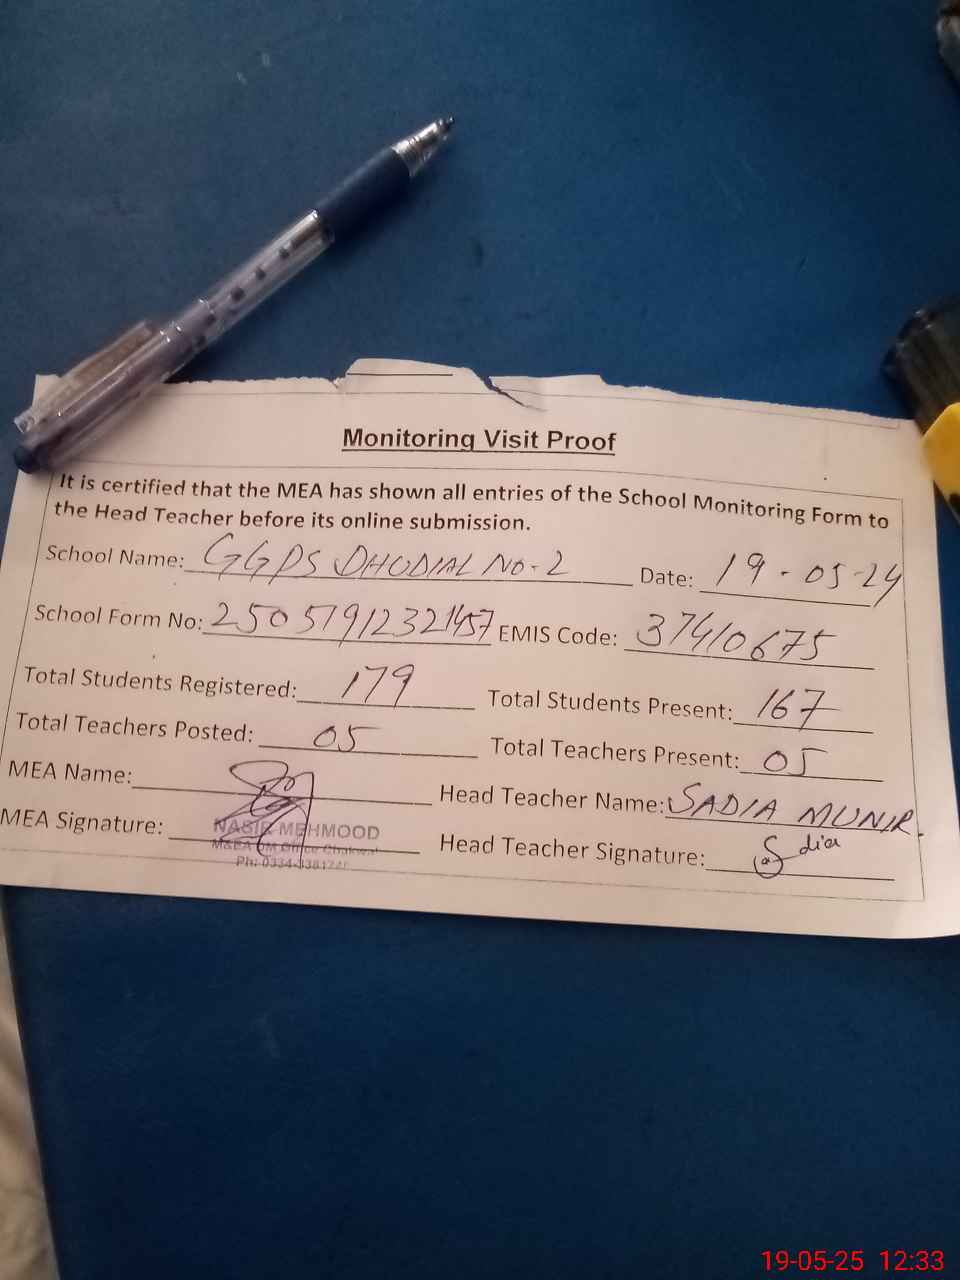 Monitoring Visit Proof
It is certified that the MEA has shown all entries of the School Monitoring Form to
the Head Teacher before its online submission.
School Name: GGPS DHUDIAL NO-2 Date: 19-05-24
School Form No: 25051912321457 EMIS Code: 37410675
Total Students Registered: 179 Total Students Present: 167
Total Teachers Posted: 05 Total Teachers Present: 05
MEA Name: Head Teacher Name: SADIA MUNIR.
MEA Signature: Head Teacher Signature: Sadia
NASIR MEHMOOD
M&EA DM Office Chakwal
Ph: 0334-
19-05-25 12:33